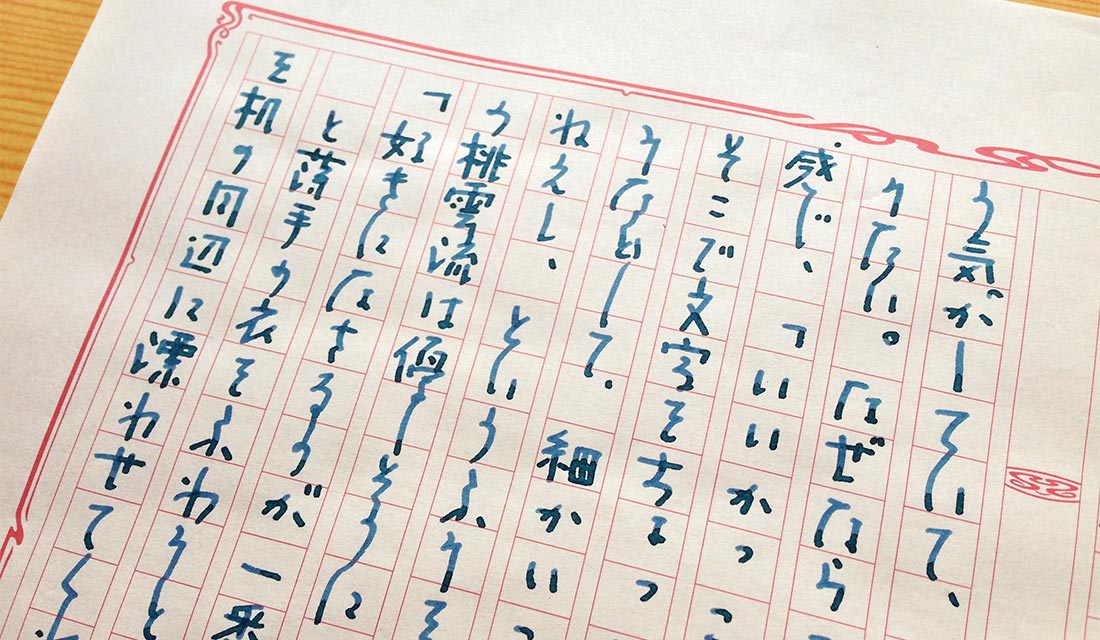 う気がしていて、
りない。なぜなら
感じ、「いいかっこ
そこで文字をちょっ
うなどして、細かい
ねえし、というふうに
の桃雲流は優しそうに
「好きになさるのが一
と落手の衣をふわりと
を机の周辺に漂わせてく